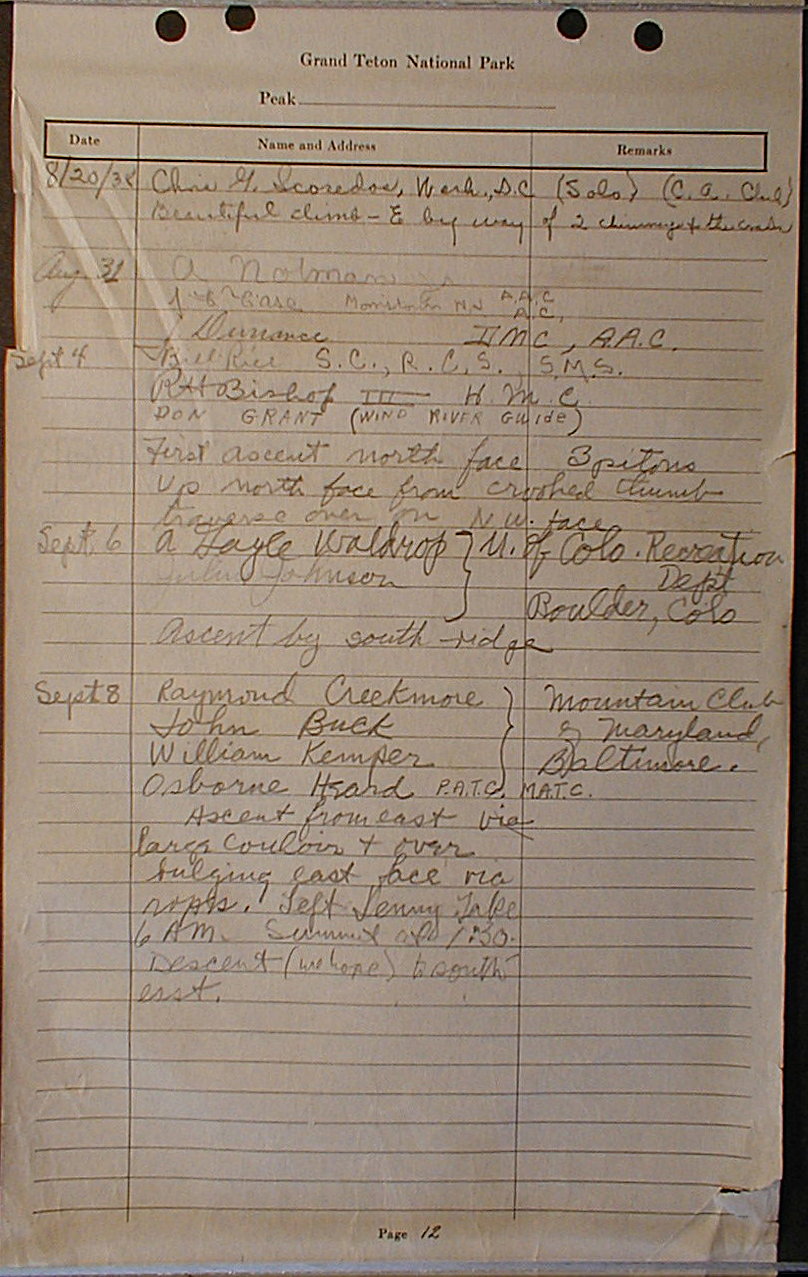 Grand Teton National Park
Peak
Date Name and Address Remarks
8/20/38 Chris G. Scoredos, Wash., D.C (Solo) (C. A. Club)
Beautiful climb - E by way of 2 chimneys & the
Aug. 31 A Notman
J B Gasa Morristown N.J A.A.C
A.C.,
J Durrance DMC, A.A.C.
Sept 4 Bill Rice S.C., R.C.S., S.M.S.
RH Bishop III H.M.C.
DON GRANT (WIND RIVER GUIDE)
First ascent north face 3 pitons
Up north face from crooked thumb
traverse over on N.W. face
Sept. 6 A Gayle Waldrop } U. of Colo. Recreation
Johnson Dept
Boulder, Colo
Ascent by south ridge
Sept 8 Raymond Creekmore } Mountain Club
John Buck of Maryland,
William Kemper Baltimore.
Osborne Heard P.A.T.C. M.A.T.C.
Ascent from east via
large couloir + over
bulging east face via
ropes. Left Jenny Lake
6 AM. Summit at 1:30.
Descent (we hope) to south
east.
Page 12